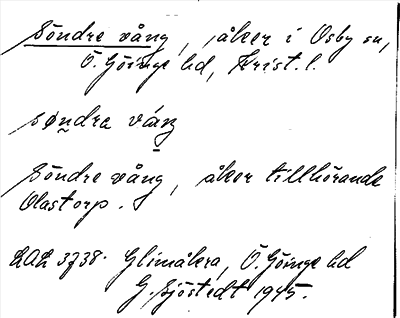 Söndre vång, åker i Osby sn,
Ö. Göinge hd, Krist. l.
söndra váŋ
Söndre vång, åker tillhörande
Olastorp.
LAL 3738. Glimåkra, Ö. Göinge hd
G. Sjöstedt 1945.